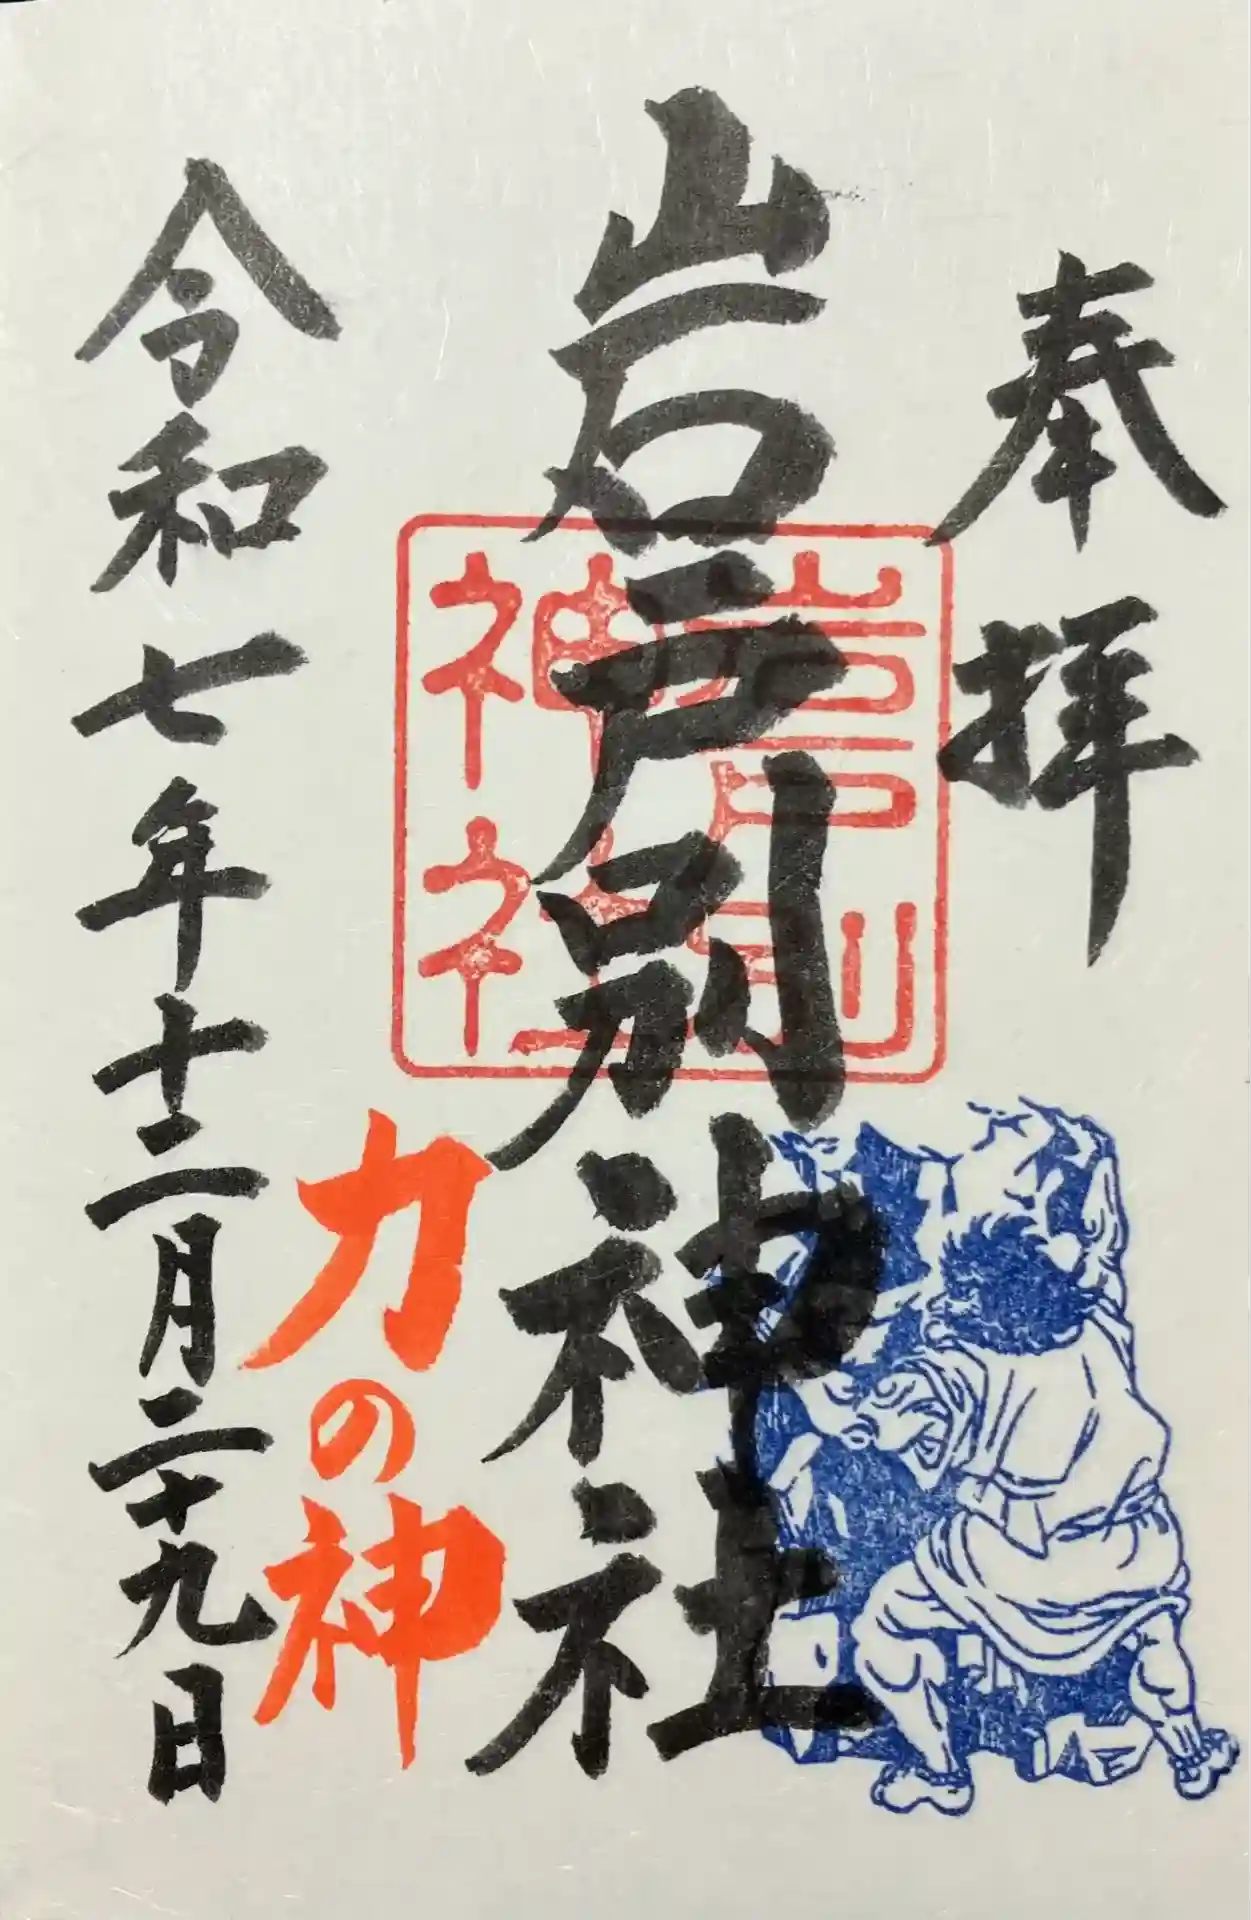 奉拝
岩戸別神社
岩戸別
神社
力の神
令和七年十二月二十九日